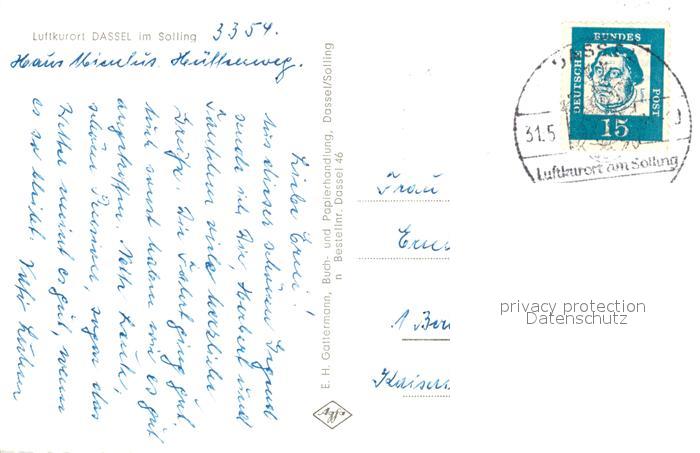 Luftkurort DASSEL im Solling 3354.
Haus Hüttenweg.
Liebe Erni!
Aus dieser schönen Gegend
sende ich Dir, Herbert und
viele herzliche
Grüße. Die Fahrt ging gut.
Auch sonst haben wir es gut
angetroffen. Nette Leute,
schönes Zimmer, sogar das
Wetter meint es gut, wenn
es so bleibt.
E. H. Gattermann, Buch- und Papierhandlung, Dassel/Solling
n Bestellnr. Dassel 46
Agfa
DEUTSCHE BUNDES POST
15
DASSEL
31.5
Luftkurort am Solling
Frau
1 Ber
Kaiser
privacy protection
Datenschutz